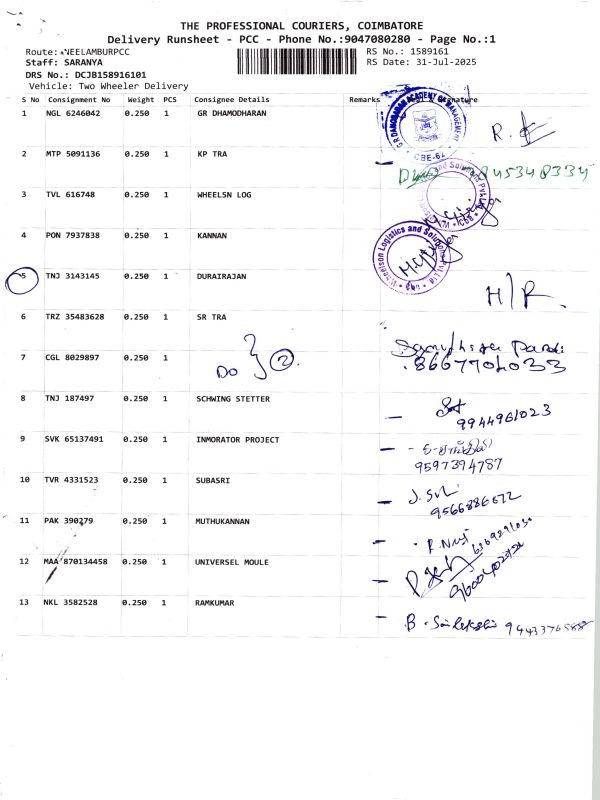 THE PROFESSIONAL COURIERS, COIMBATORE
Delivery Runsheet - PCC - Phone No.:9047080280 - Page No.:1
Route: NEELAMBURPCC RS No.: 1589161
Staff: SARANYA RS Date: 31-Jul-2025
DRS No.: DCJB158916101
Vehicle: Two Wheeler Delivery
S No Consignment No Weight PCS Consignee Details Remarks Signature
1 NGL 6246042 0.250 1 GR DHAMODHARAN
G R DAMODARAN ACADEMY OF MANAGEMENT
CBE-62
R.
2 MTP 5091136 0.250 1 KP TRA
845348334
3 TVL 616748 0.250 1 WHEELSN LOG
4 PON 7937838 0.250 1 KANNAN
Wheelson Logistics and Solutions Pvt Ltd
5 TNJ 3143145 0.250 1 DURAIRAJAN
H/R.
6 TRZ 35483628 0.250 1 SR TRA
DO } 2
7 CGL 8029897 0.250 1
8667704033
8 TNJ 187497 0.250 1 SCHWING STETTER
9944961023
9 SVK 65137491 0.250 1 INMORATOR PROJECT
9597394787
10 TVR 4331523 0.250 1 SUBASRI
9566886672
11 PAK 390279 0.250 1 MUTHUKANNAN
12 MAA 870134458 0.250 1 UNIVERSEL MOULE
13 NKL 3582528 0.250 1 RAMKUMAR
B. 9443376588